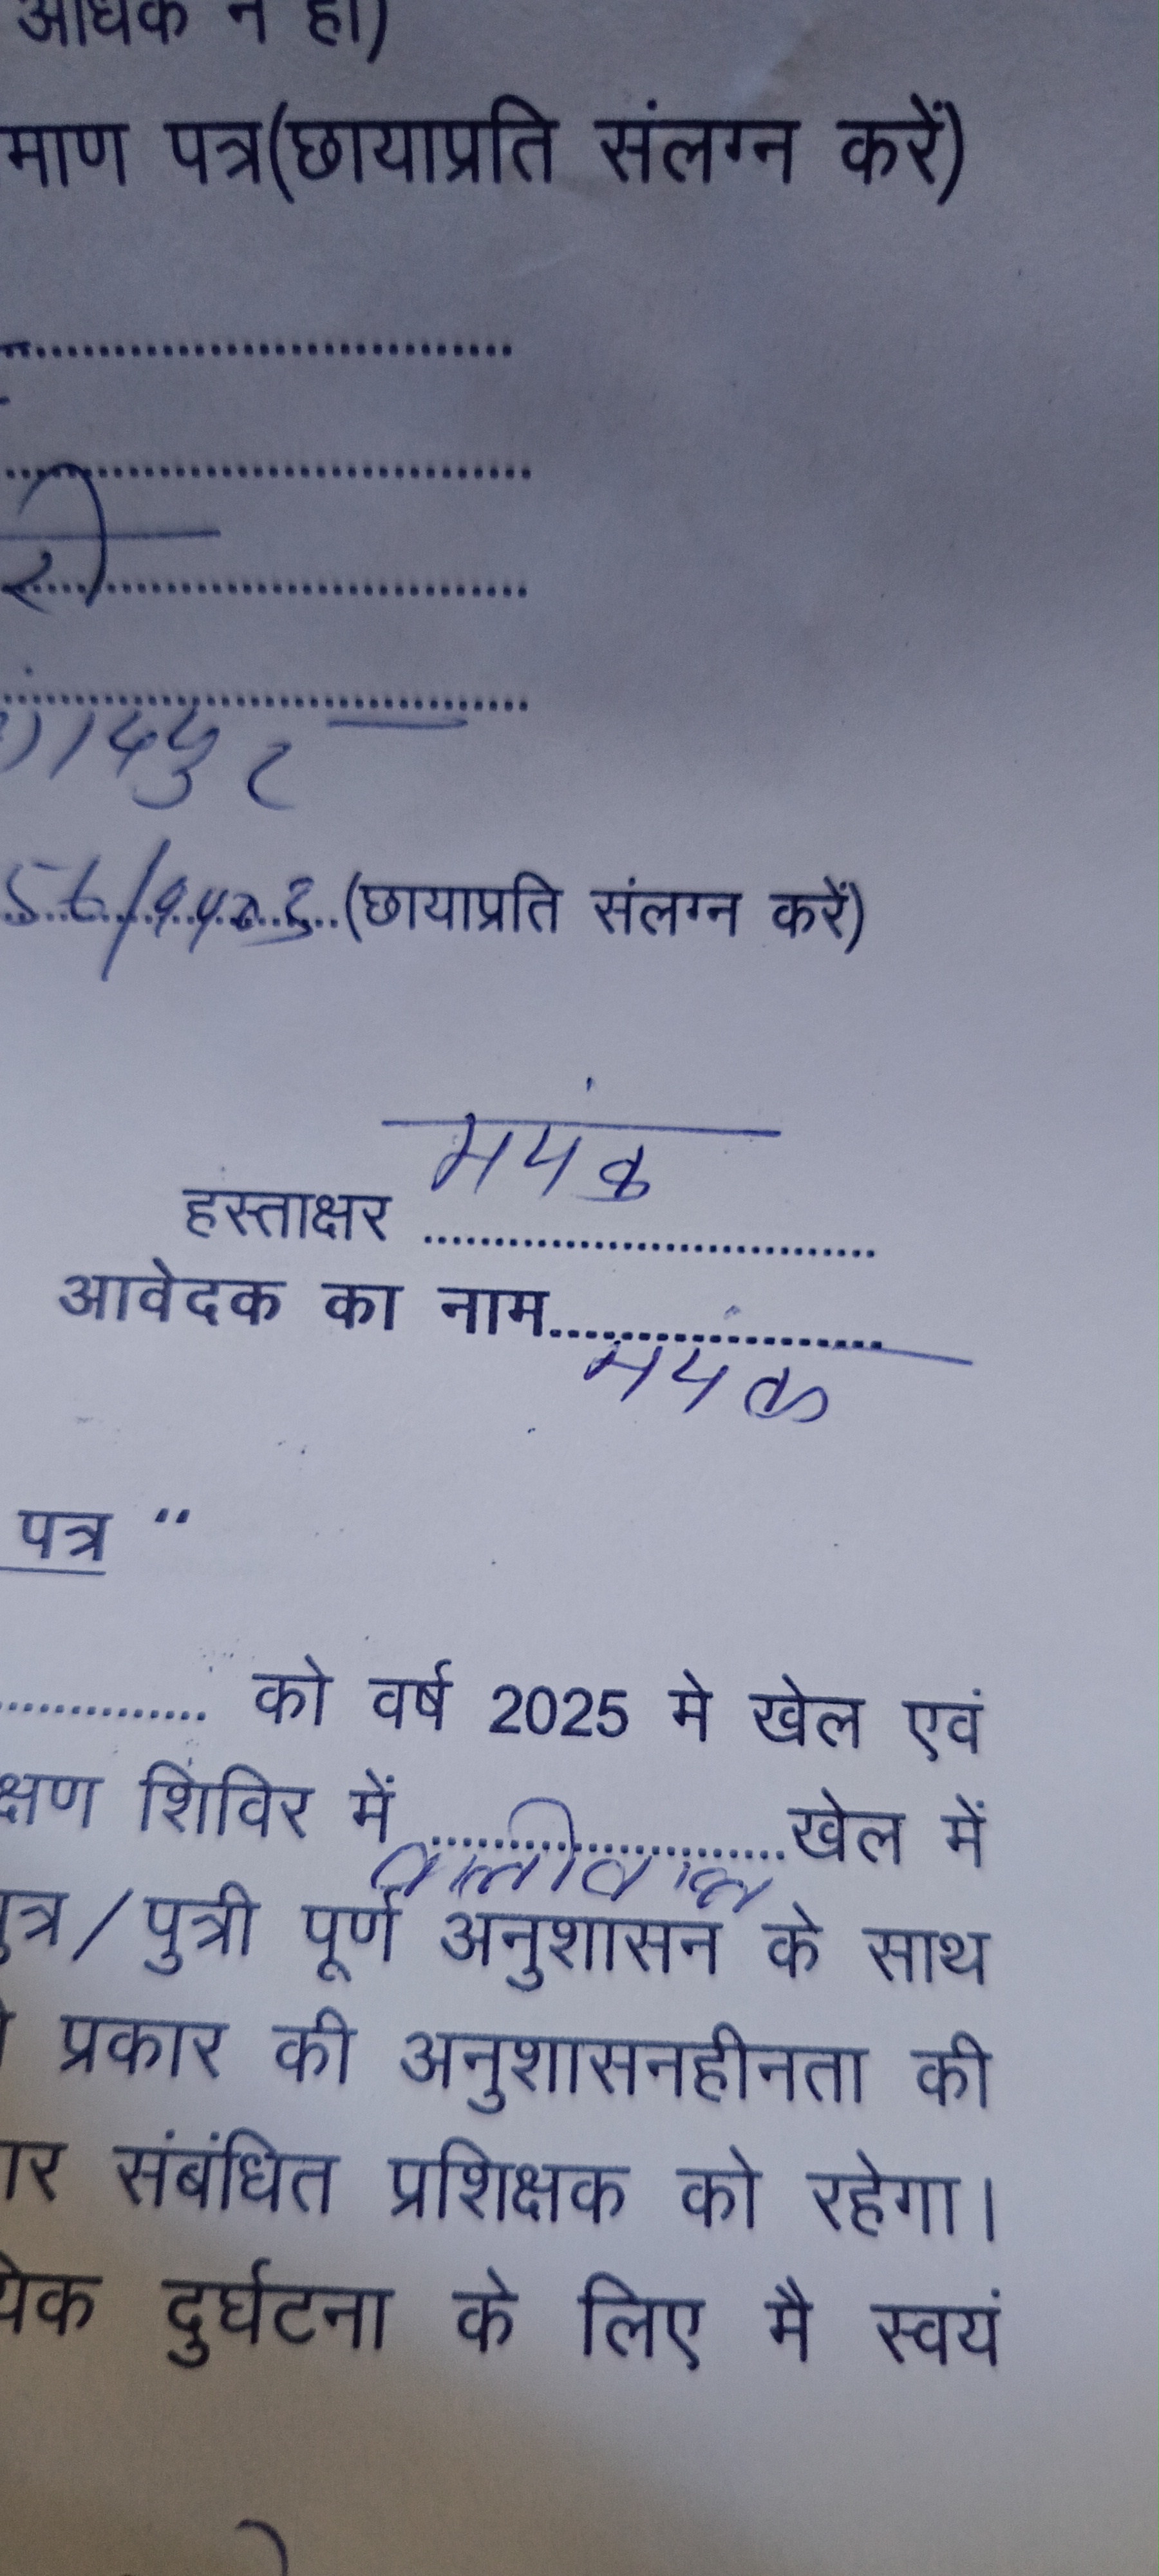 अधिक न हो)
माण पत्र(छायाप्रति संलग्न करें)
री
56/9423 (छायाप्रति संलग्न करें)
मयंक
हस्ताक्षर
आवेदक का नाम
मयंक
पत्र "
को वर्ष 2025 मे खेल एवं
क्षण शिविर में वालीवाल खेल में
पुत्र/पुत्री पूर्ण अनुशासन के साथ
प्रकार की अनुशासनहीनता की
संबंधित प्रशिक्षक को रहेगा।
दुर्घटना के लिए मै स्वयं